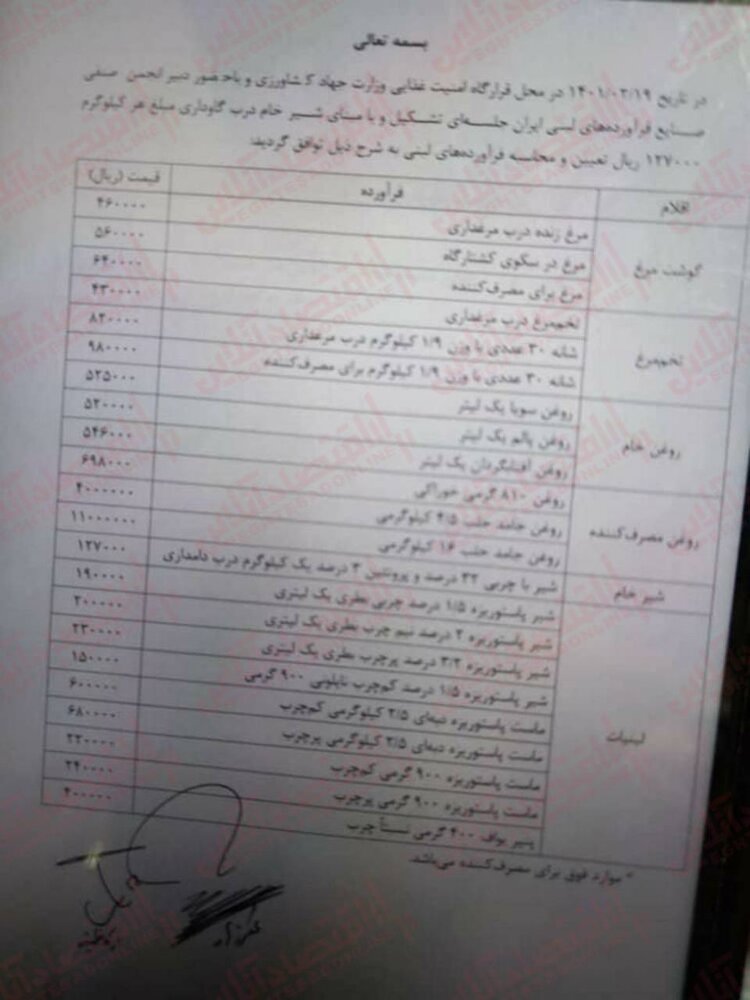 بسمه تعالی
در تاریخ ۱۴۰۱/۰۲/۱۹ در محل قرارگاه امنیت غذایی وزارت جهاد کشاورزی و باحضور دبیر انجمن صنفی
صنایع فرآورده‌های لبنی ایران جلسه‌ای تشکیل و با مبنای شیر خام درب گاوداری مبلغ هر کیلوگرم
۱۲۷۰۰۰ ریال تعیین و محاسبه فرآورده‌های لبنی به شرح ذیل توافق گردید:
اقلام فرآورده قیمت (ریال)
گوشت مرغ
مرغ زنده درب مرغداری ۴۶۰۰۰۰
مرغ در سکوی کشتارگاه ۵۶۰۰۰۰
مرغ برای مصرف‌کننده ۶۴۰۰۰۰
تخم‌مرغ
تخم‌مرغ درب مرغداری ۴۳۰۰۰۰
شانه ۳۰ عددی با وزن ۱/۹ کیلوگرم درب مرغداری ۸۲۰۰۰۰
شانه ۳۰ عددی با وزن ۱/۹ کیلوگرم برای مصرف‌کننده ۹۸۰۰۰۰
روغن خام
روغن سویا یک لیتر ۵۲۵۰۰۰
روغن پالم یک لیتر ۵۲۰۰۰۰
روغن آفتابگردان یک لیتر ۵۴۶۰۰۰
روغن مصرف‌کننده
روغن ۸۱۰ گرمی خوراکی ۶۹۸۰۰۰
روغن جامد حلب ۴/۵ کیلوگرمی ۴۰۰۰۰۰۰
روغن جامد حلب ۱۶ کیلوگرمی ۱۱۰۰۰۰۰۰
شیر خام
شیر با چربی ۳۲ درصد و پروتئین ۳ درصد یک کیلوگرم درب دامداری ۱۲۷۰۰۰
لبنیات
شیر پاستوریزه ۱/۵ درصد چربی بطری یک لیتری ۱۹۰۰۰۰
شیر پاستوریزه ۲ درصد نیم چرب بطری یک لیتری ۲۰۰۰۰۰
شیر پاستوریزه ۳/۲ درصد پرچرب بطری یک لیتری ۲۳۰۰۰۰
شیر پاستوریزه ۱/۵ درصد کم‌چرب نایلونی ۹۰۰ گرمی ۱۵۰۰۰۰
ماست پاستوریزه دبه‌ای ۲/۵ کیلوگرمی کم‌چرب ۶۰۰۰۰۰
ماست پاستوریزه دبه‌ای ۲/۵ کیلوگرمی پرچرب ۶۸۰۰۰۰
ماست پاستوریزه ۹۰۰ گرمی کم‌چرب ۲۲۰۰۰۰
ماست پاستوریزه ۹۰۰ گرمی پرچرب ۲۴۰۰۰۰
پنیر یواف ۴۰۰ گرمی نسبتاً چرب ۴۰۰۰۰۰
* موارد فوق برای مصرف‌کننده می‌باشد.